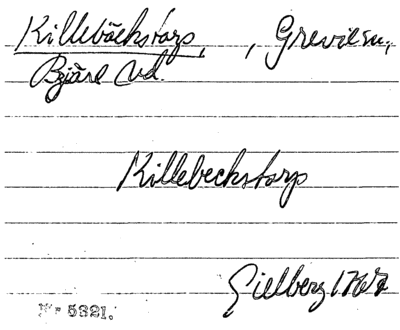 Killebäckstorp, , Grevie sn,
Bjäre hd.
Killebeckstorp
Gielberg 1767
Nr 5321.